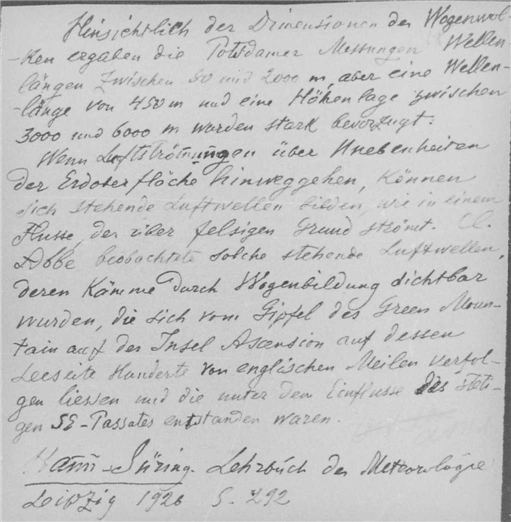 Hinsichtlich der Dimensionen der Wogenwol-
-ken ergaben die Potsdamer Messungen Wellen-
längen zwischen 50 und 2000 m, aber eine Wellen-
-länge von 450 m und eine Höhenlage zwischen
3000 und 6000 m wurden stark bevorzugt.
Wenn Luftströmungen über Unebenheiten
der Erdoberfläche hinweggehen, können
sich stehende Luftwellen bilden, wie in einem
Flusse, der über felsigen Grund strömt. Cl.
Abbe beobachtete solche stehende Luftwellen,
deren Kämme durch Wogenbildung sichtbar
wurden, die sich vom Gipfel des Green Moun-
tain auf der Insel Ascension auf dessen
Leeseite Hunderte von englischen Meilen verfol-
gen liessen und die unter dem Einflusse des steti-
gen SE-Passates entstanden waren.
Hann-Süring. Lehrbuch der Meteorologie
Leipzig 1926 S. 292